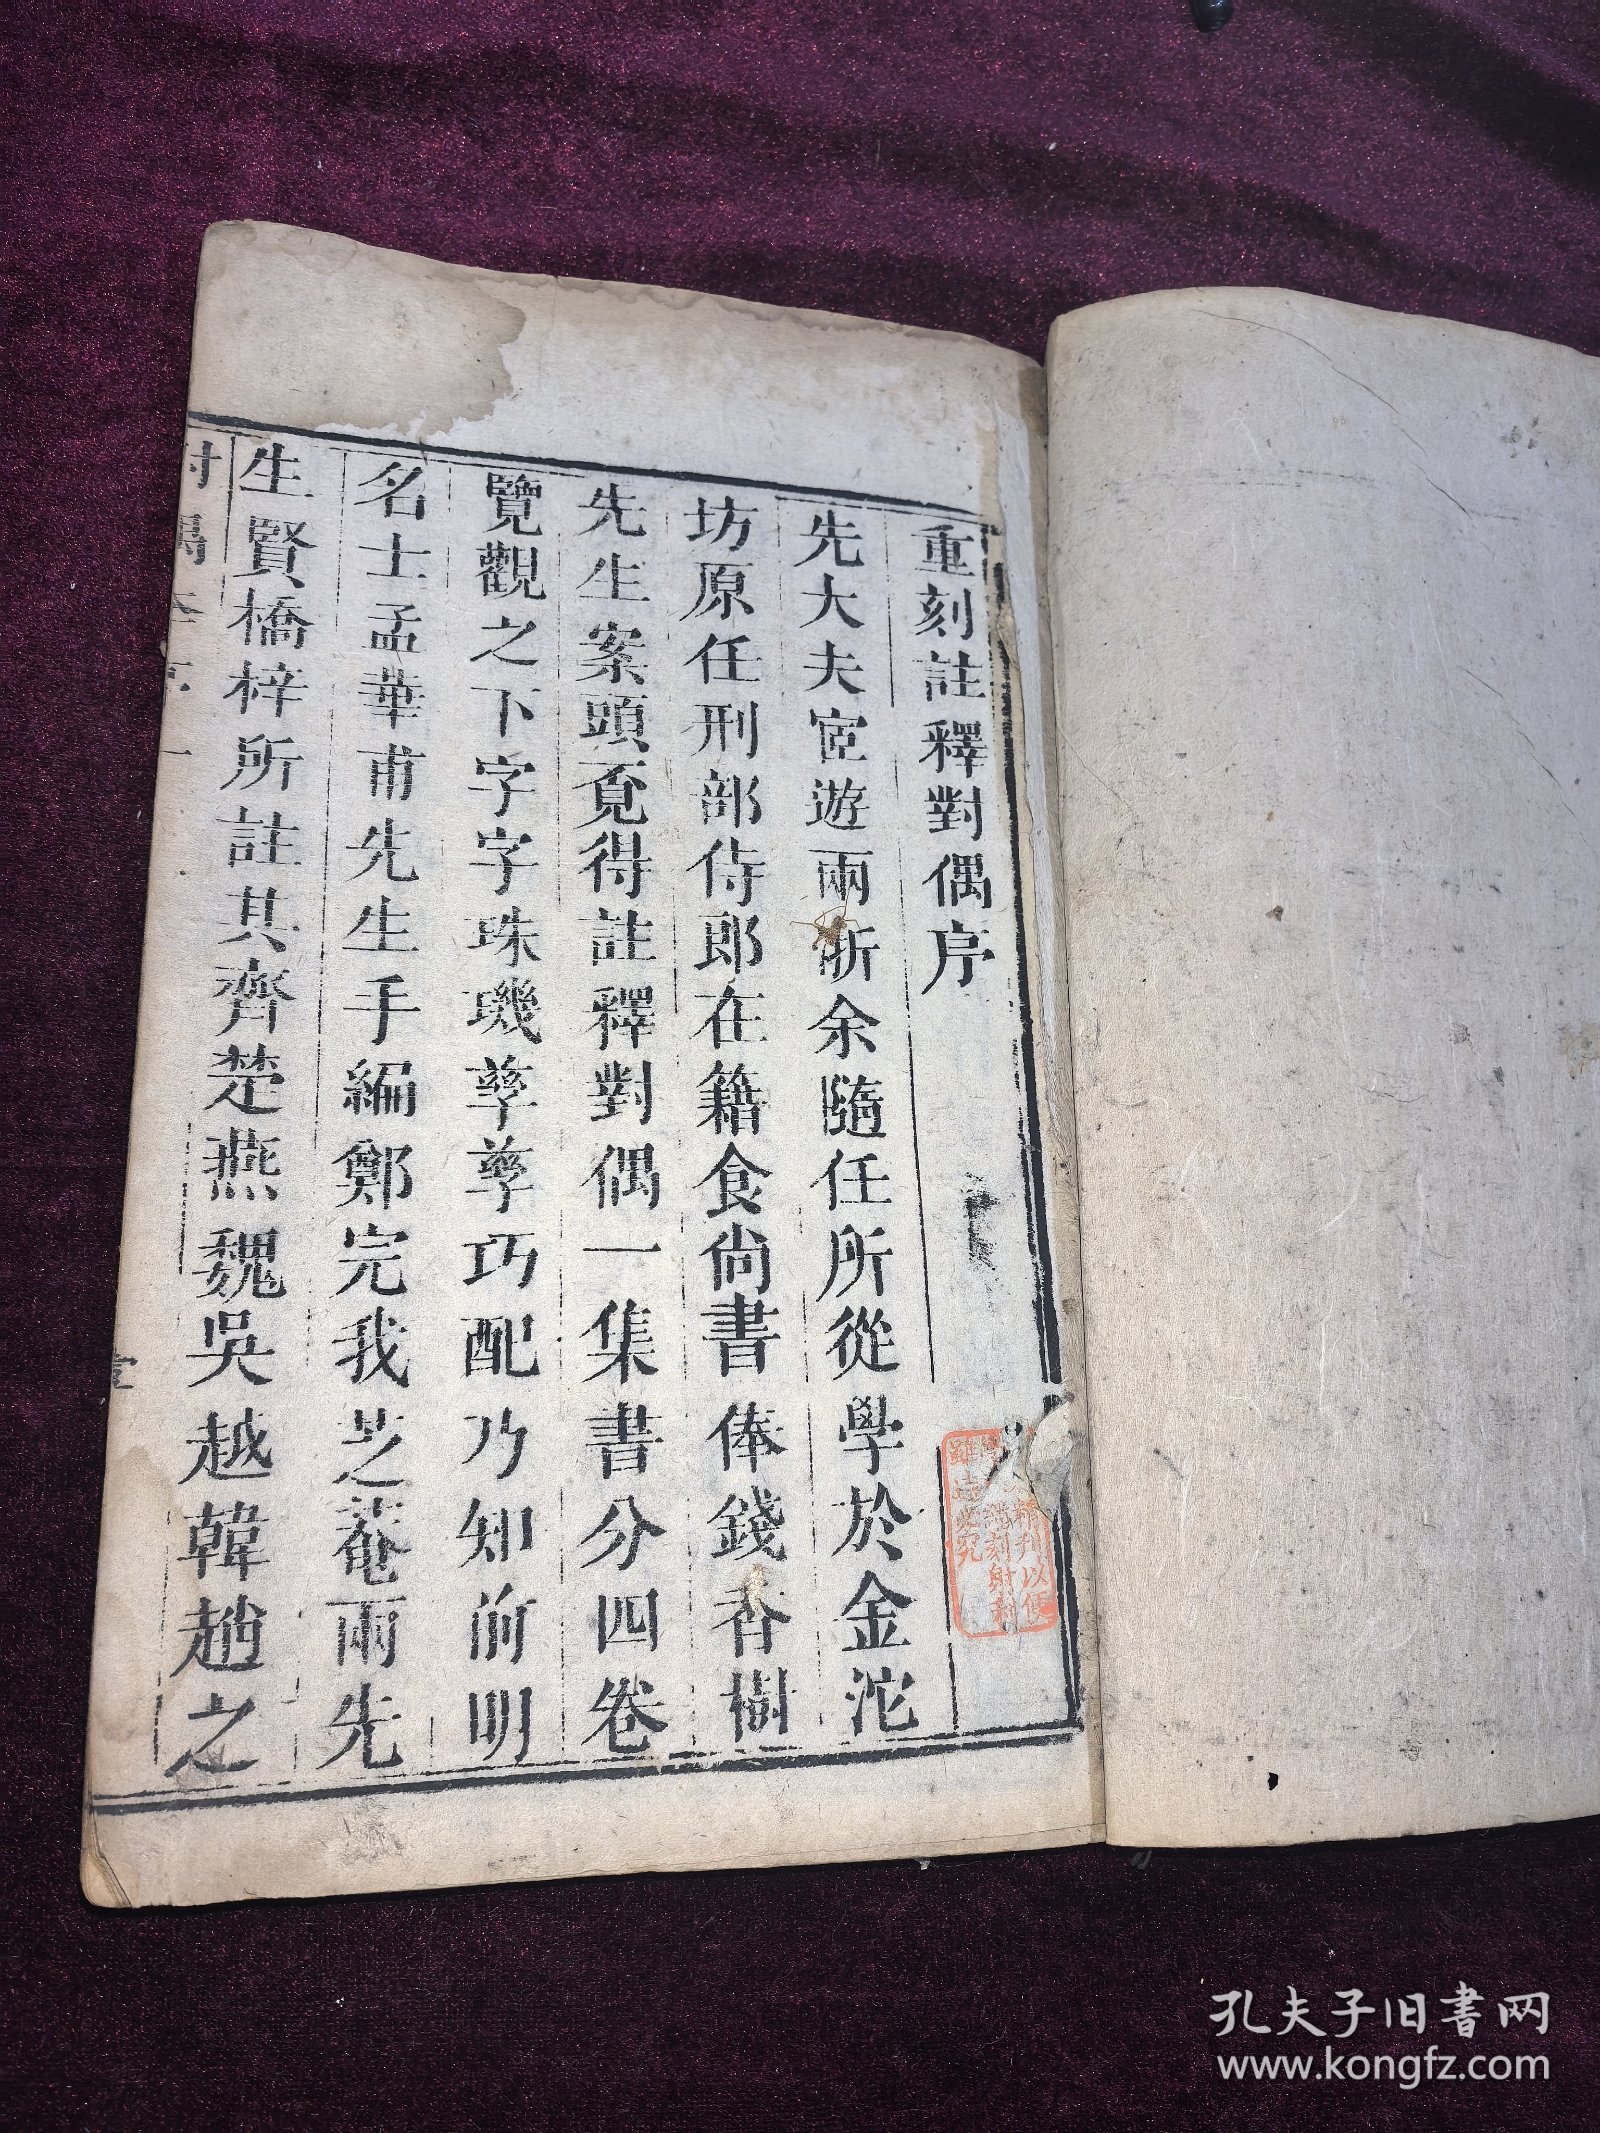 重刻註釋對偶序
先大夫宦遊兩浙余隨任所從學於金沱
坊原任刑部侍郎在籍食尚書俸錢香樹
先生案頭覓得註釋對偶一集書分四卷
覽觀之下字字珠璣孳孳巧配乃知前明
名士孟華甫先生手編鄭完我芝菴兩先
生賢橋梓所註其齊楚燕魏吳越韓趙之
精刊以便
翻刻射利
雖遠必究
孔夫子旧书网
www.kongfz.com